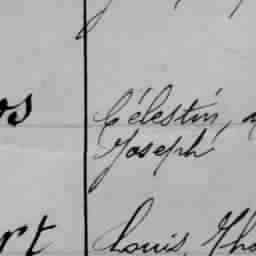 os Célestin,
Joseph
rt Louis, Tho